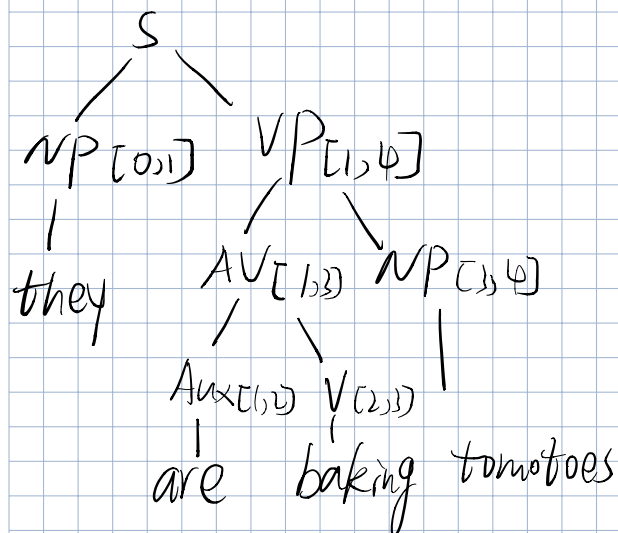 S
NP[0,1] VP[1,4]
they AV[1,3] NP[3,4]
Aux[1,2] V[2,3]
are baking tomotoes